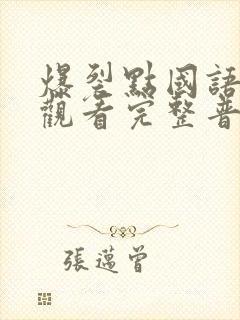 爆裂點國語
觀看完整普
張邁曾